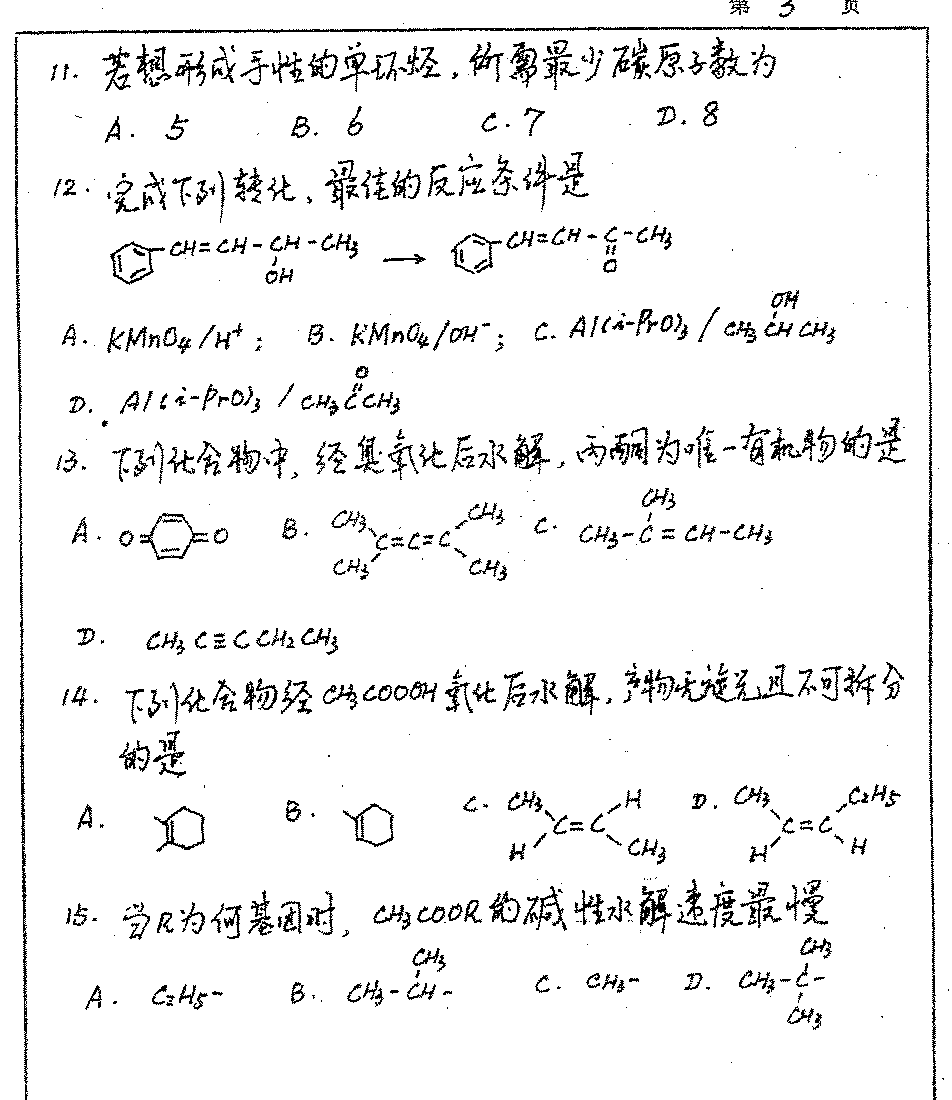 第 3 页
11. 若想形成手性的单环烃,所需最少碳原子数为
A. 5 B. 6 C. 7 D. 8
12. 完成下列转化,最佳的反应条件是
CH=CH-CH-CH3 → CH=CH-C-CH3
OH O
OH
A. KMnO4/H+; B. KMnO4/OH-; C. Al(i-PrO)3 / CH3CHCH3
O
D. Al(i-PrO)3 / CH3CCH3
13. 下列化合物中,经臭氧化后水解,丙酮为唯一有机物的是
CH3 CH3 CH3
A. O= =O B. C=C=C C. CH3-C=CH-CH3
CH3 CH3
D. CH3C≡CCH2CH3
14. 下列化合物经CH3COOOH氧化后水解,产物无旋光且不可拆分
的是
A. B. C. CH3 H D. CH3 C2H5
C=C C=C
H CH3 H H
15. 当R为何基团时,CH3COOR的碱性水解速度最慢
CH3 CH3
A. C2H5- B. CH3-CH- C. CH3- D. CH3-C-
CH3